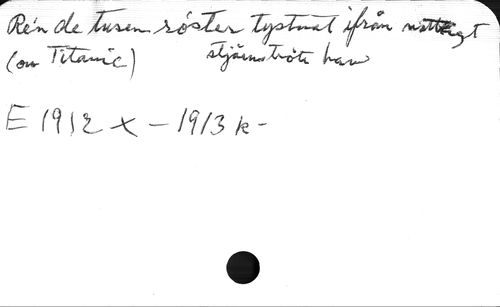 Re'n de tusen röster tystnat ifrån nattligt
(om Titanic) stjärnströdt hav
E 1912 x - 1913 k -